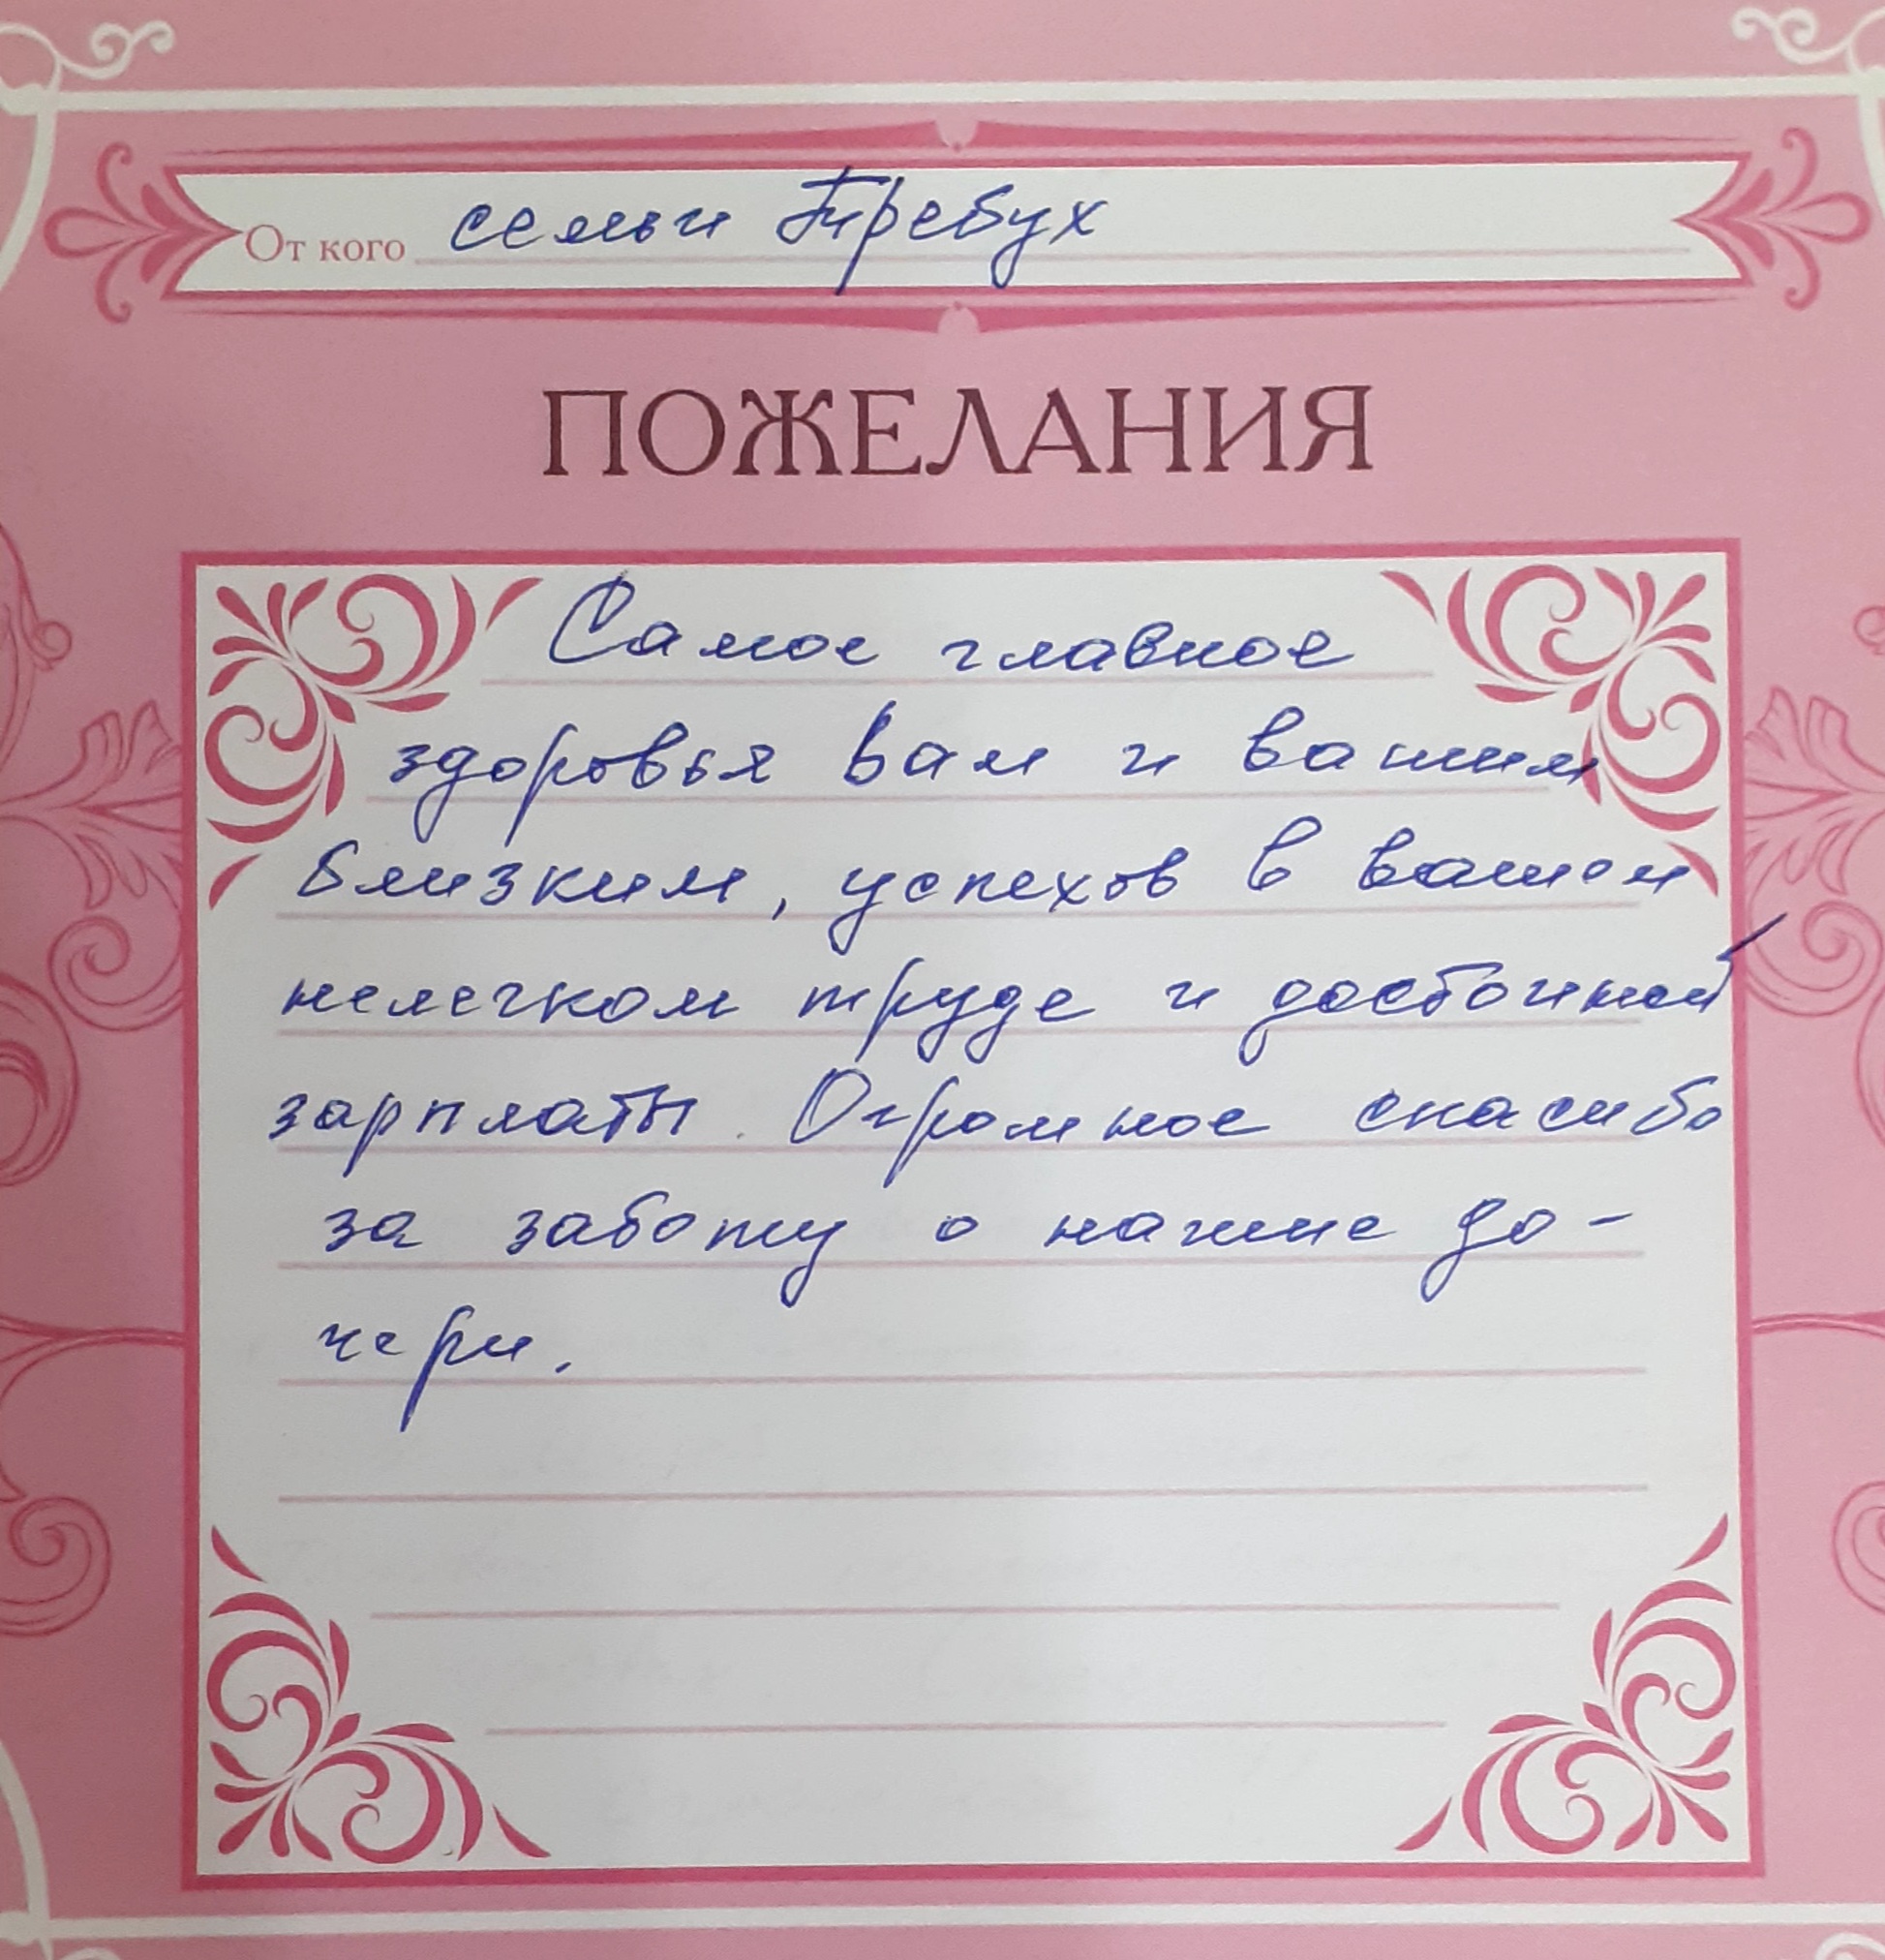 От кого семьи Требух
ПОЖЕЛАНИЯ
Самое главное
здоровья вам и вашим
близким, успехов в вашем
нелегком труде и достойной
зарплаты. Огромное спасибо
за заботу о нашие до-
чери.